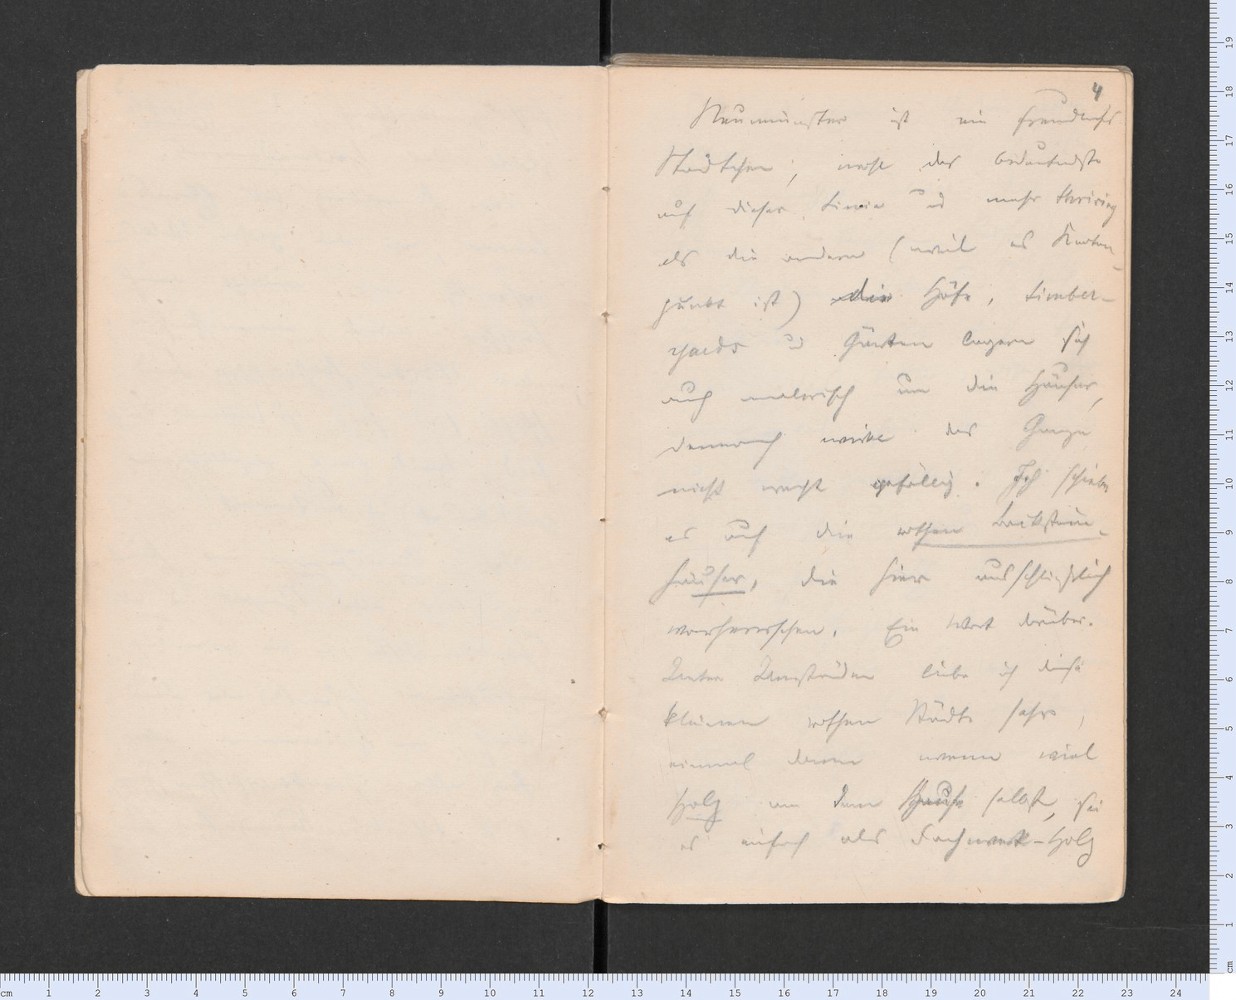 4
Neumünster ist ein freundlichs
Städtchen; wohl das bedeutendste
auf dieser Linie und mehr thriving
als die andern (weil es Knoten-
punkt ist) die Höfe, timber-
yards und Gärten lagern sich
auch malerisch um die Häuser,
dennoch wirkt das Ganze
nicht recht gefällig. Ich schiebe
es auf die rothen Backstein-
häuser, die hier ausschließlich
vorherrschen. Ein Wort drüber.
Unter Umständen liebe ich diese
kleinen rothen Städte sehr,
einmal dann wenn viel
Holz an dem Hause selbst, sei
es einfach als Fachwerk-Holz